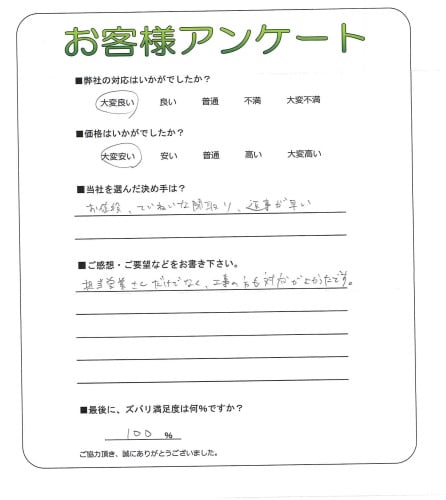 お客様アンケート
■弊社の対応はいかがでしたか？
大変良い 良い 普通 不満 大変不満
■価格はいかがでしたか？
大変安い 安い 普通 高い 大変高い
■当社を選んだ決め手は？
お値段、ていねいな聞取り、返事が早い
■ご感想・ご要望などをお書き下さい。
担当営業さんだけでなく、工事の方も対応がよかったです。
■最後に、ズバリ満足度は何％ですか？
100 %
ご協力頂き、誠にありがとうございました。